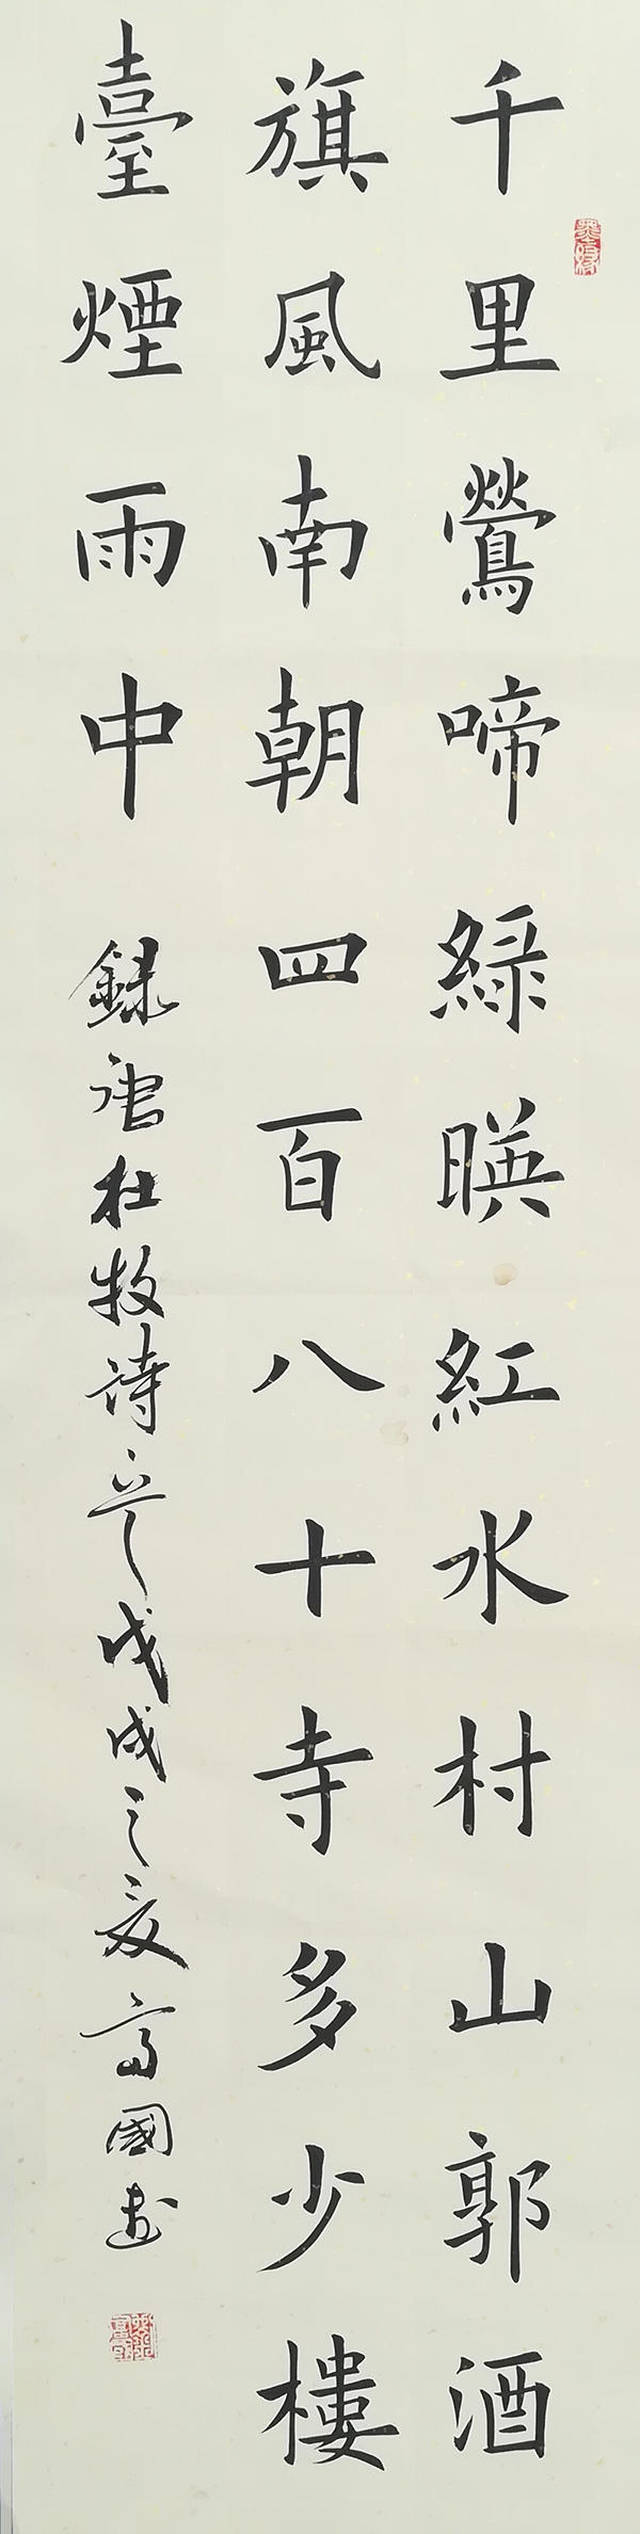 千里鶯啼綠暎紅水村山郭酒
旗風南朝四百八十寺多少樓
臺煙雨中 録唐杜牧诗意戊戌之夏高國书